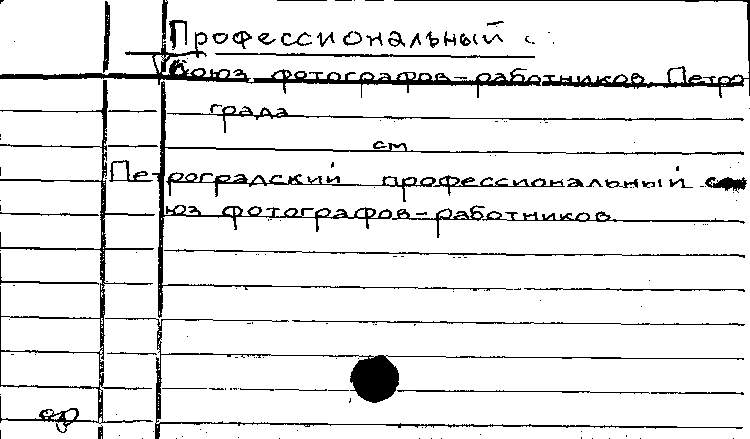 Профессиональный с
союз фотографов-работников Петро
града
см
Петроградский профессиональный со
юз фотографов-работников.